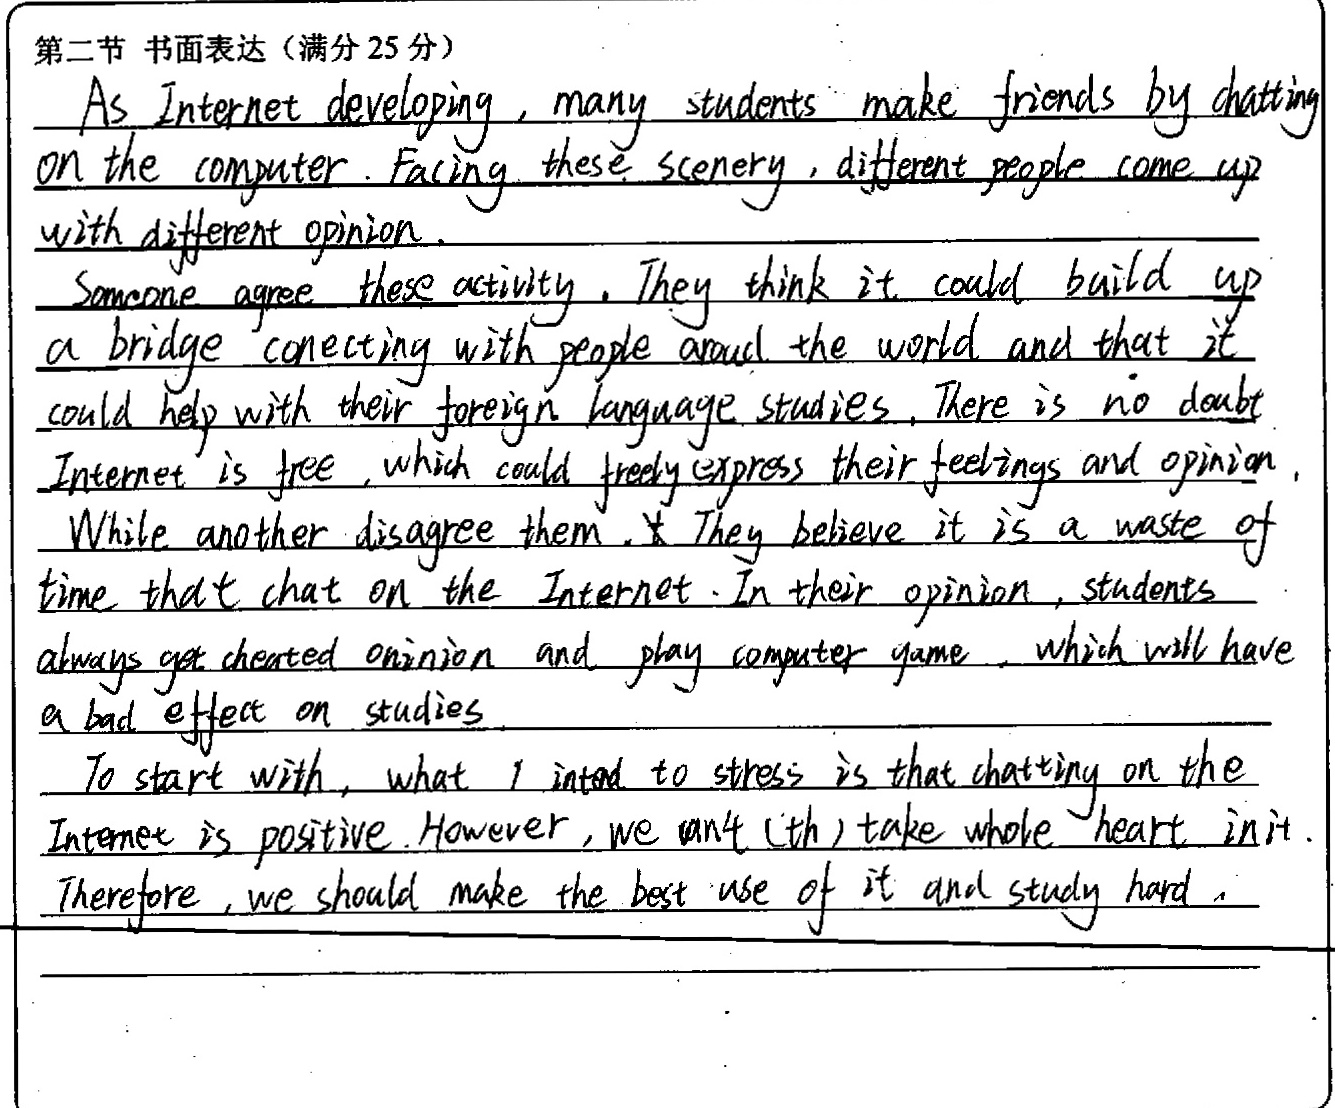 第二节 书面表达（满分 25 分）
As Internet developing, many students make friends by chatting
on the computer. Facing these scenery, different people come up
with different opinion.
Someone agree these activity. They think it could build up
a bridge conecting with people aroud the world and that it
could help with their foreign language studies. There is no doubt
Internet is free, which could freely express their feelings and opinion.
While another disagree them. They believe it is a waste of
time that chat on the Internet. In their opinion, students
always get cheated oninion and play computer game, which will have
a bad effect on studies
To start with, what I intend to stress is that chatting on the
Internet is positive. However, we can't (th) take whole heart in it.
Therefore, we should make the best use of it and study hard.